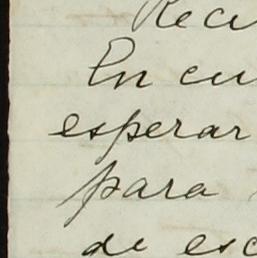 Reci
En cu
esperar
para
de esc